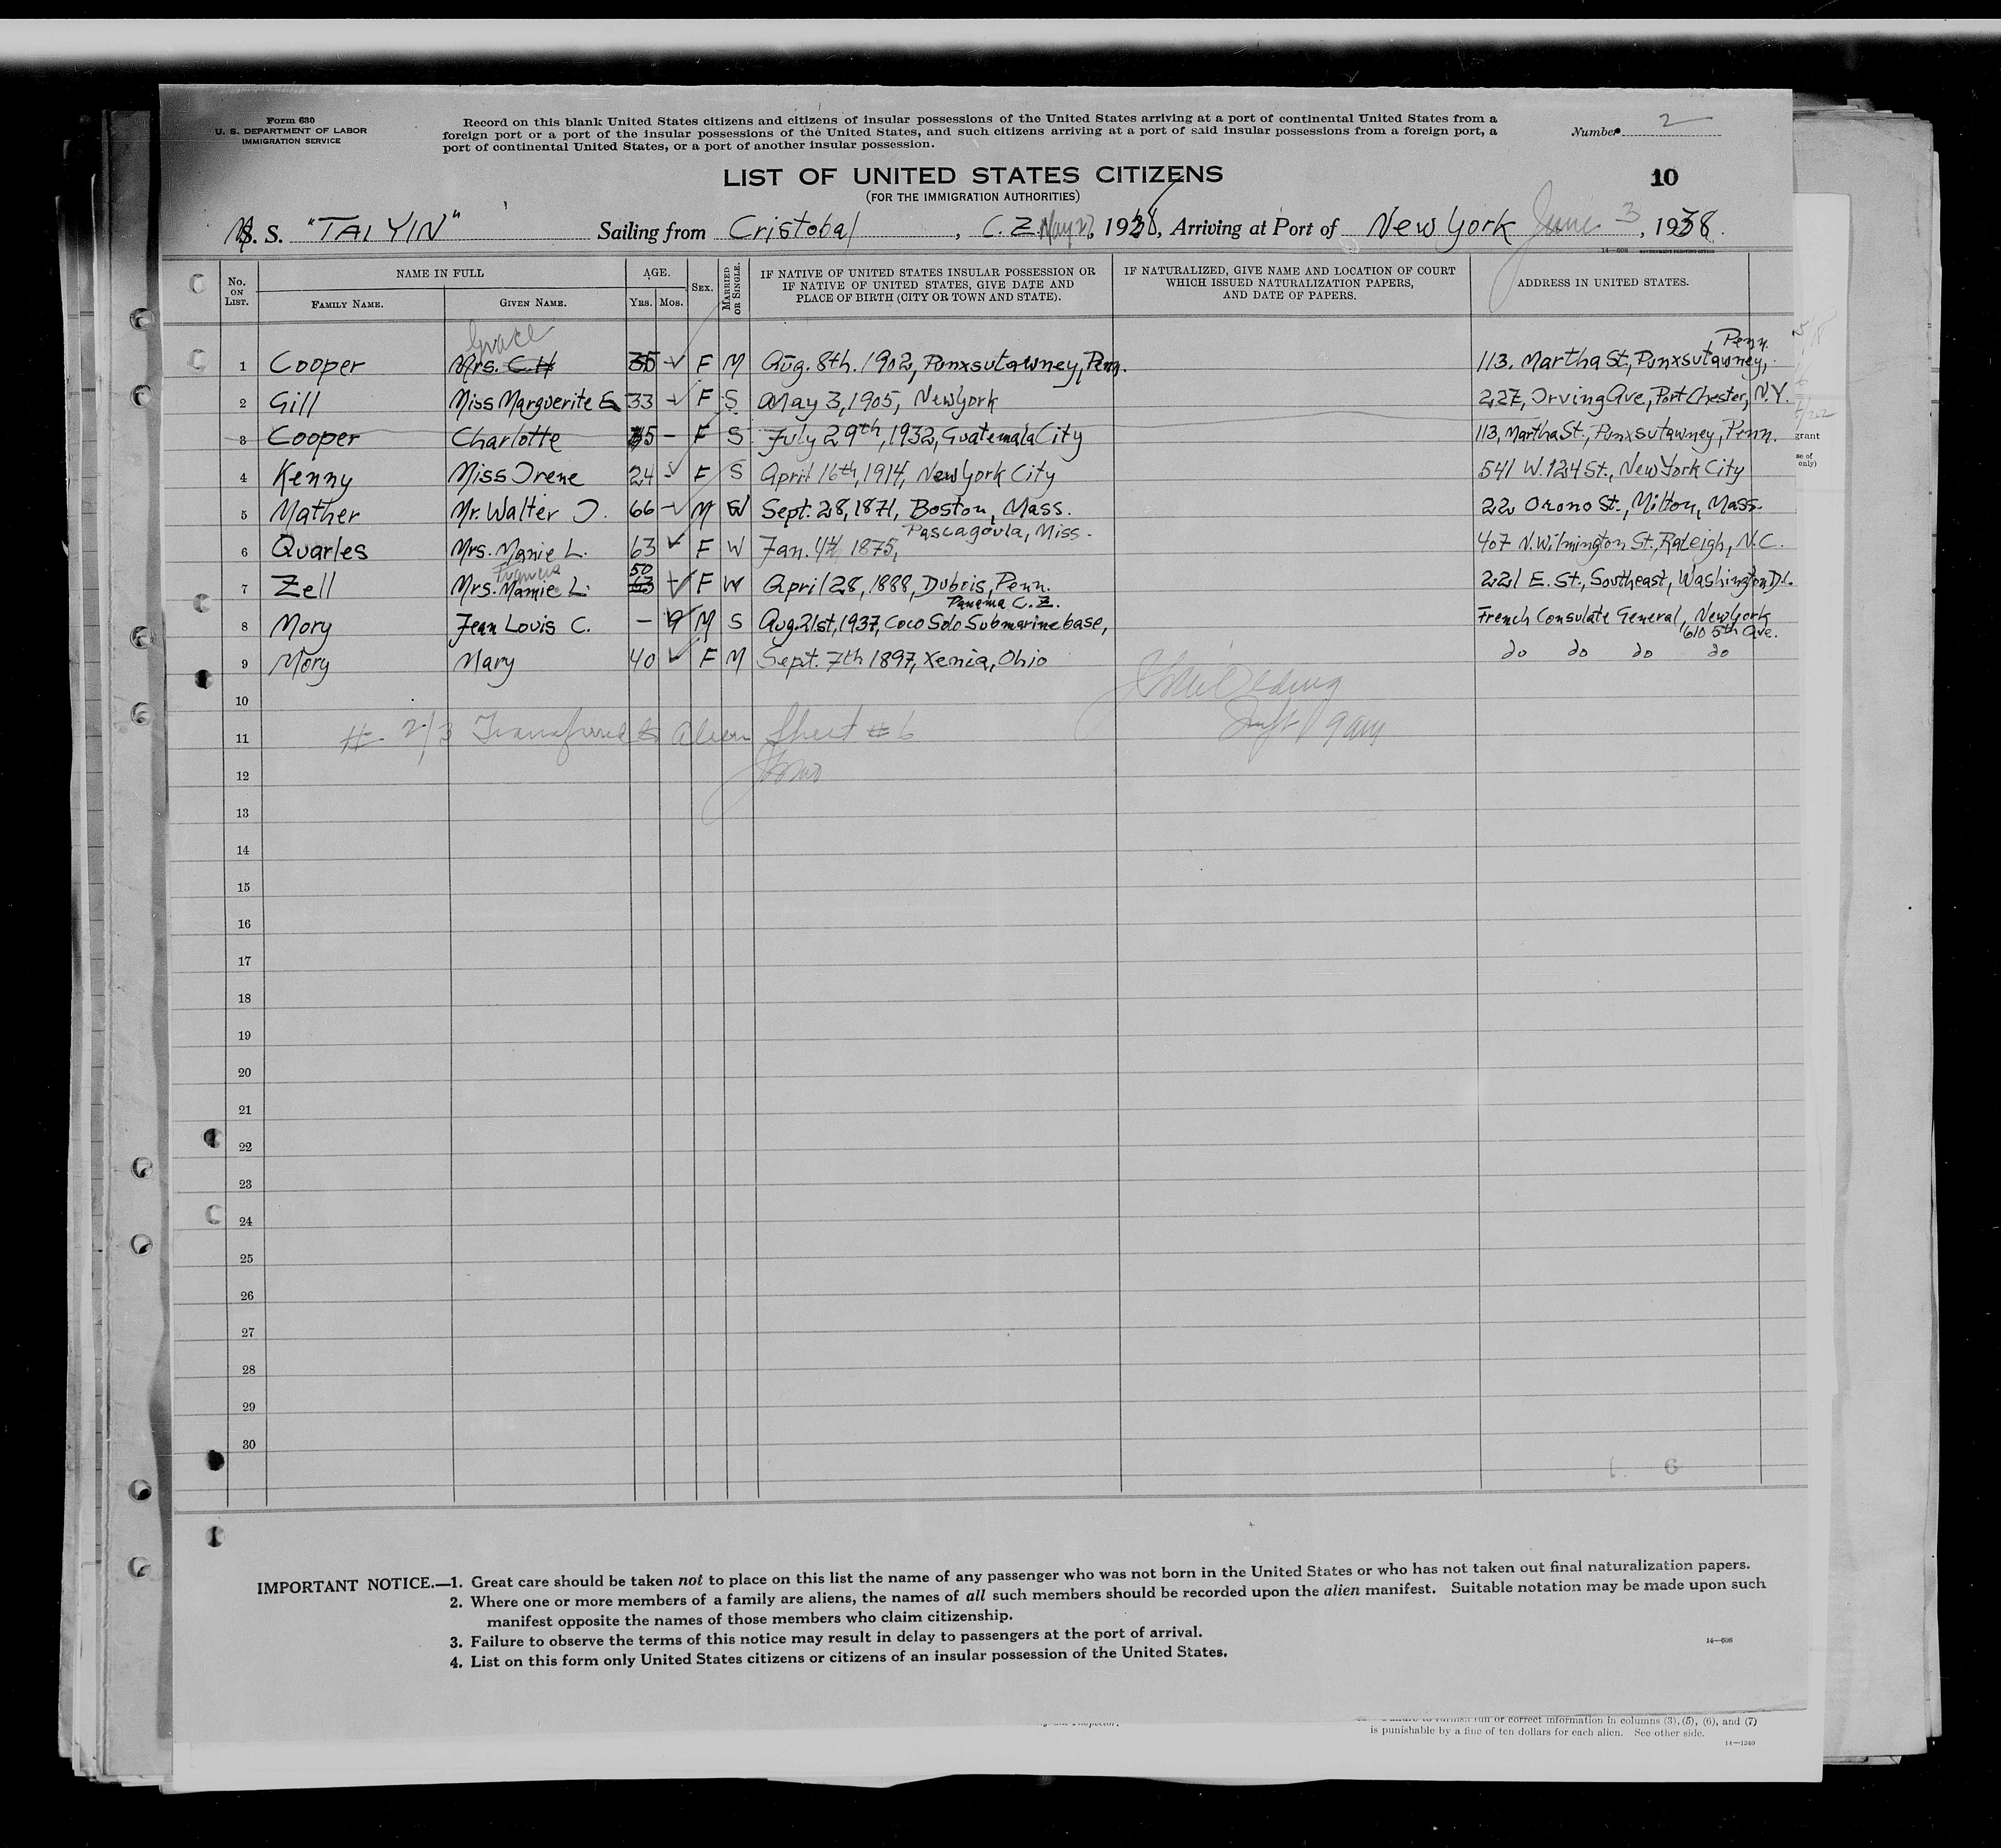 Form 630
U. S. DEPARTMENT OF LABOR
IMMIGRATION SERVICE
Record on this blank United States citizens and citizens of insular possessions of the United States arriving at a port of continental United States from a
foreign port or a port of the insular possessions of the United States, and such citizens arriving at a port of said insular possessions from a foreign port, a
port of continental United States, or a port of another insular possession.
Number 2
LIST OF UNITED STATES CITIZENS
10
(FOR THE IMMIGRATION AUTHORITIES)
M. S. "TAI YIN" Sailing from Cristobal, C. Z. May 27, 1938, Arriving at Port of New York June 3, 1938.
14—608 GOVERNMENT PRINTING OFFICE
No. ON LIST. NAME IN FULL FAMILY NAME. GIVEN NAME. AGE. YRS. MOS. SEX. MARRIED OR SINGLE. IF NATIVE OF UNITED STATES INSULAR POSSESSION OR IF NATIVE OF UNITED STATES, GIVE DATE AND PLACE OF BIRTH (CITY OR TOWN AND STATE). IF NATURALIZED, GIVE NAME AND LOCATION OF COURT WHICH ISSUED NATURALIZATION PAPERS, AND DATE OF PAPERS. ADDRESS IN UNITED STATES.
Grace
Penn.
1 Cooper Mrs. C.H 35 - F M Aug. 8th. 1902, Punxsutawney, Penn. 113. Martha St., Punxsutawney,
2 Gill Miss Marguerite E 33 - F S May 3, 1905, New York 227, Irving Ave, Port Chester, N.Y.
3 Cooper Charlotte 5 - F S July 29th, 1932, Guatemala City 113, Martha St., Punxsutawney, Penn.
4 Kenny Miss Irene 24 - F S April 16th, 1914, New York City 541 W. 124 St., New York City
5 Mather Mr. Walter J. 66 - M W Sept. 28, 1871, Boston, Mass. 22 Orono St., Milton, Mass.
Pascagoula, Miss.
6 Quarles Mrs. Manie L. 63 F W Jan. 4th 1875, 407 N. Wilmington St., Raleigh, N.C.
Francis 50
7 Zell Mrs. Mamie L. 63 F W April 28, 1888, Dubois, Penn. 221 E. St., Southeast, Washington D.C.
Panama C. Z.
8 Mory Jean Louis C. - 9 M S Aug. 21st, 1937, Coco Solo Submarine base, French Consulate General, New York
610 5th Ave.
9 Mory Mary 40 F M Sept. 7th 1897, Xenia, Ohio do do do do
10
9 am
11 # 2/3 Transferred to Alien Sheet # 6
12
13
14
15
16
17
18
19
20
21
22
23
24
25
26
27
28
29
30
6
IMPORTANT NOTICE.—1. Great care should be taken not to place on this list the name of any passenger who was not born in the United States or who has not taken out final naturalization papers.
2. Where one or more members of a family are aliens, the names of all such members should be recorded upon the alien manifest. Suitable notation may be made upon such
manifest opposite the names of those members who claim citizenship.
3. Failure to observe the terms of this notice may result in delay to passengers at the port of arrival.
14—608
4. List on this form only United States citizens or citizens of an insular possession of the United States.
or correct information in columns (3), (5), (6), and (7)
is punishable by a fine of ten dollars for each alien. See other side.
14—1240